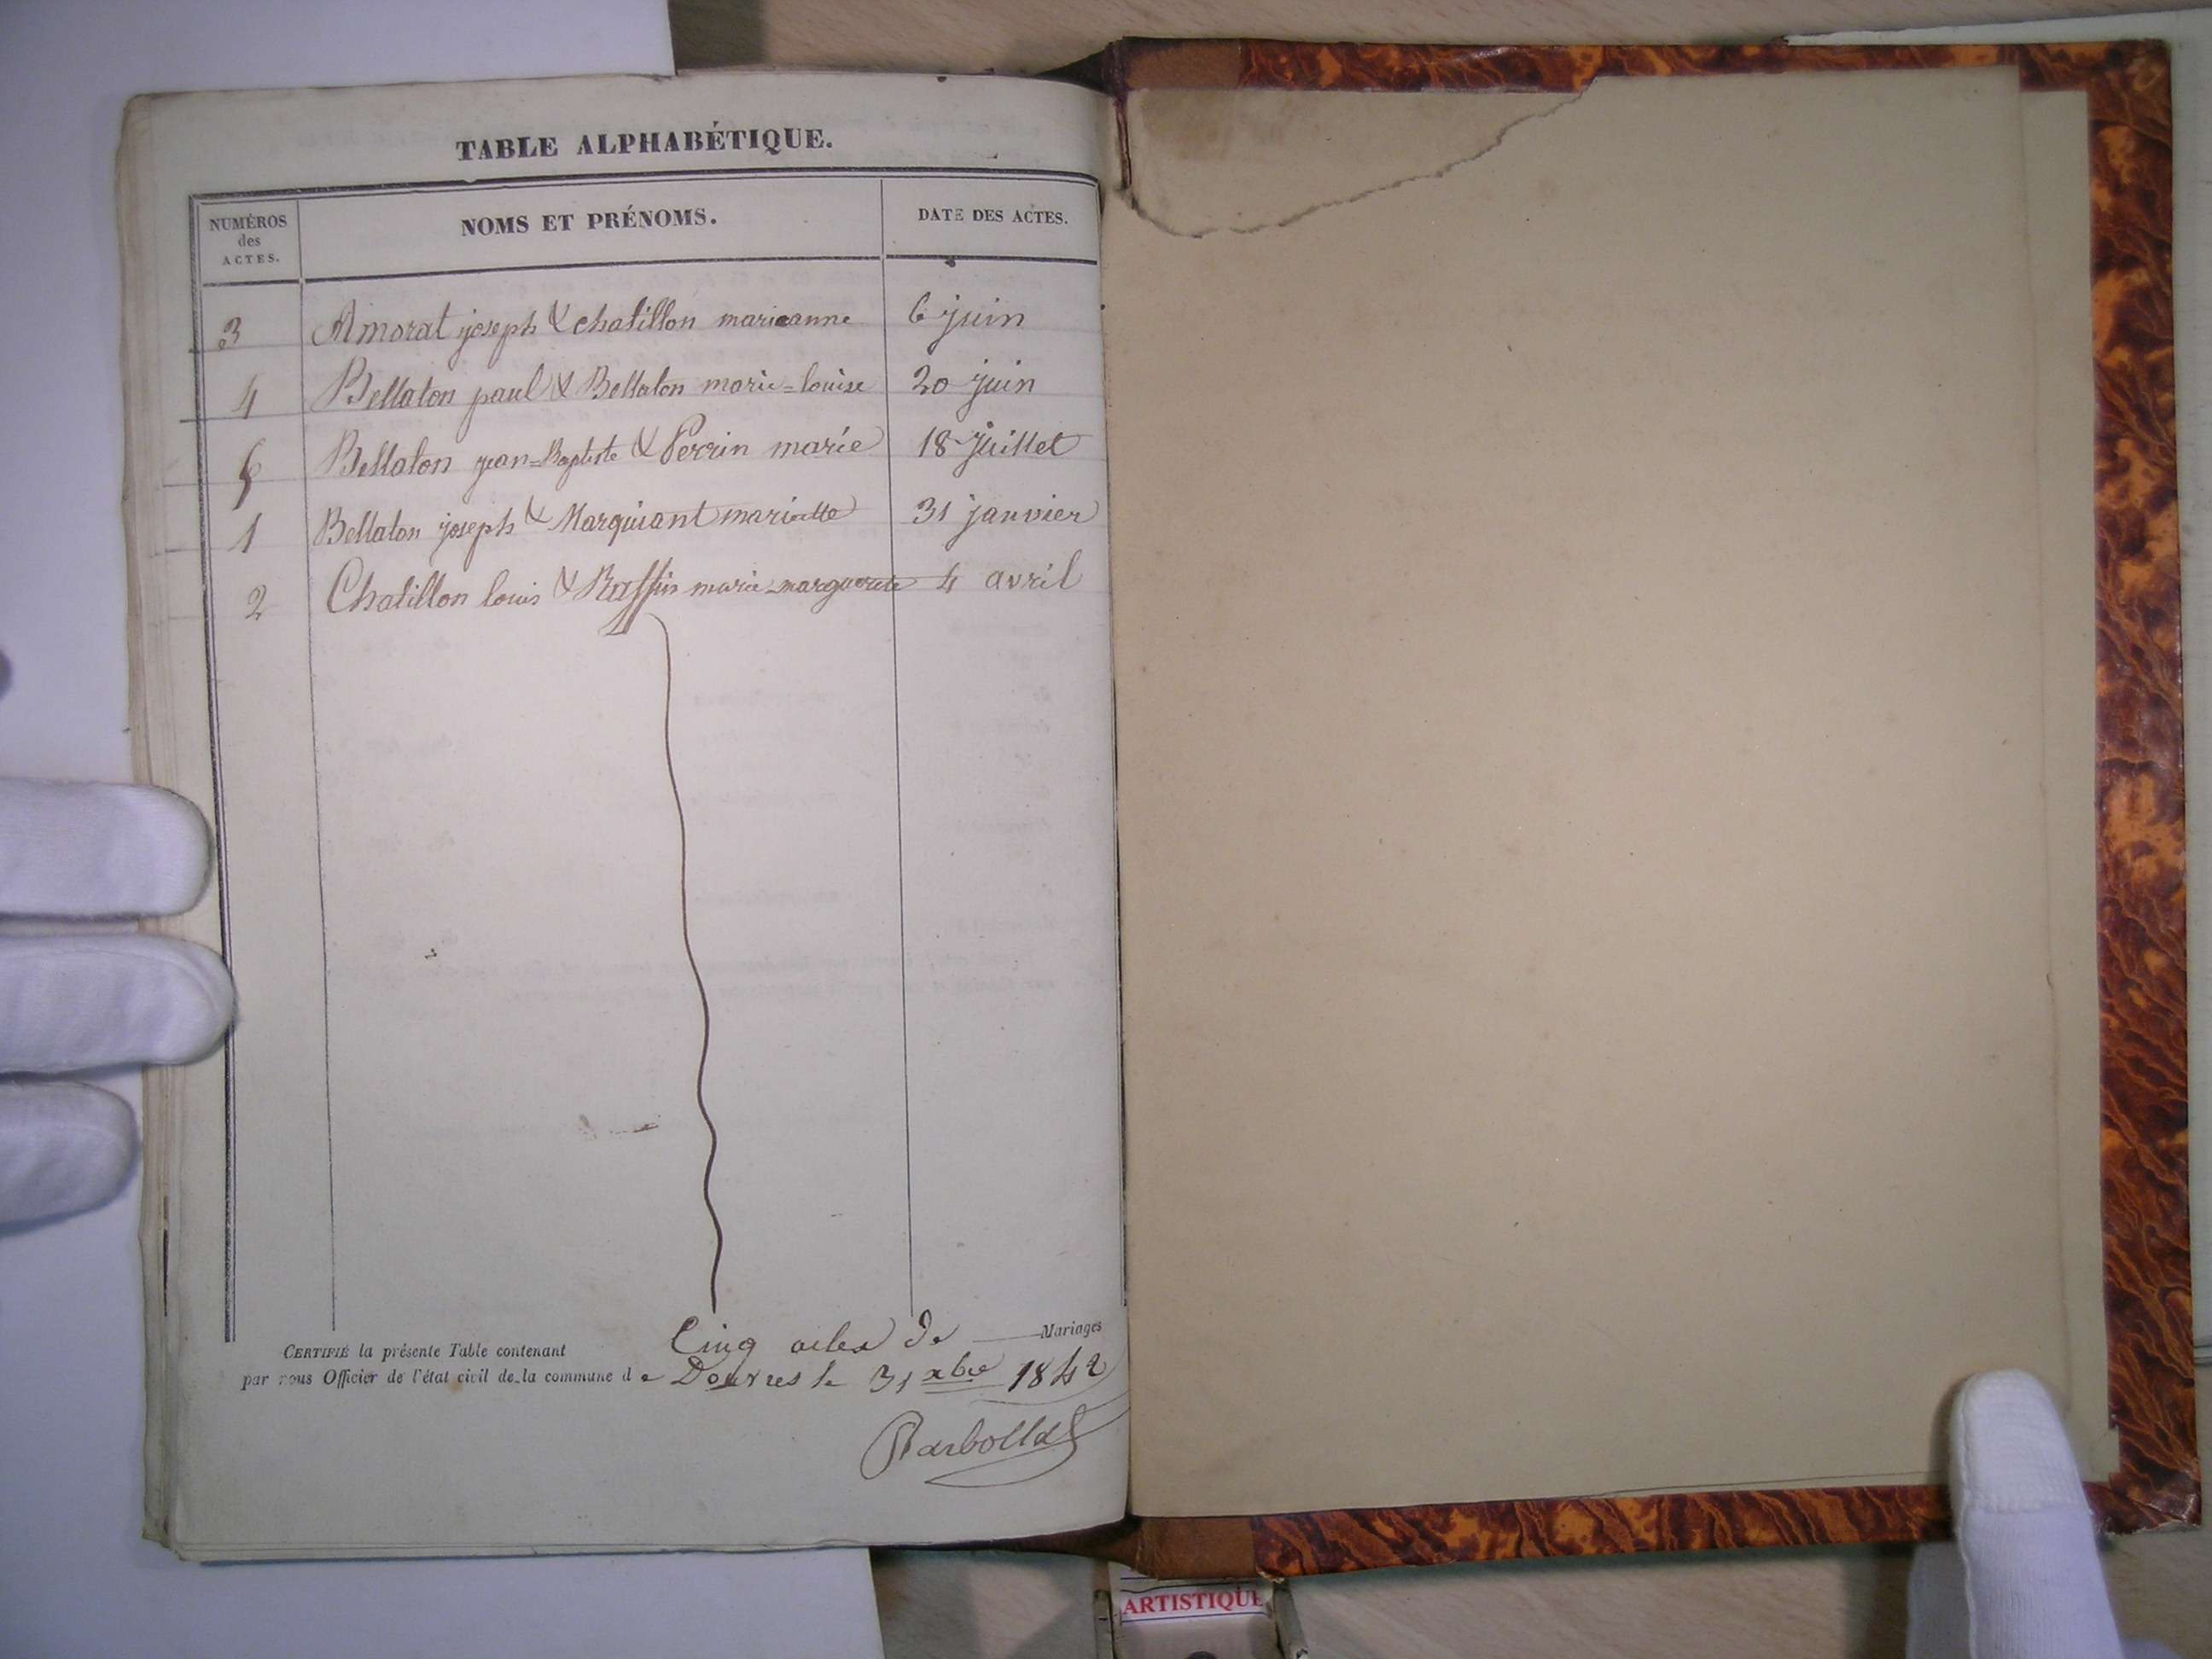 TABLE ALPHABÉTIQUE.
NUMÉROS des ACTES. NOMS ET PRÉNOMS. DATE DES ACTES.
3 Amorat joseph & chatillon marieanne 6 juin
4 Bellaton paul & Bellaton marie=louise 20 juin
5 Bellaton jean=Baptiste & Perrin marie 18 juillet
1 Bellaton joseph & Marquiant mariette 31 janvier
2 Chatillon louis & Raffin marie marguerite 4 avril
CERTIFIÉ la présente Table contenant Cinq actes de Mariages
par nous Officier de l'état civil de la commune de Douvres le 31 xbre 1842
ARTISTIQUE